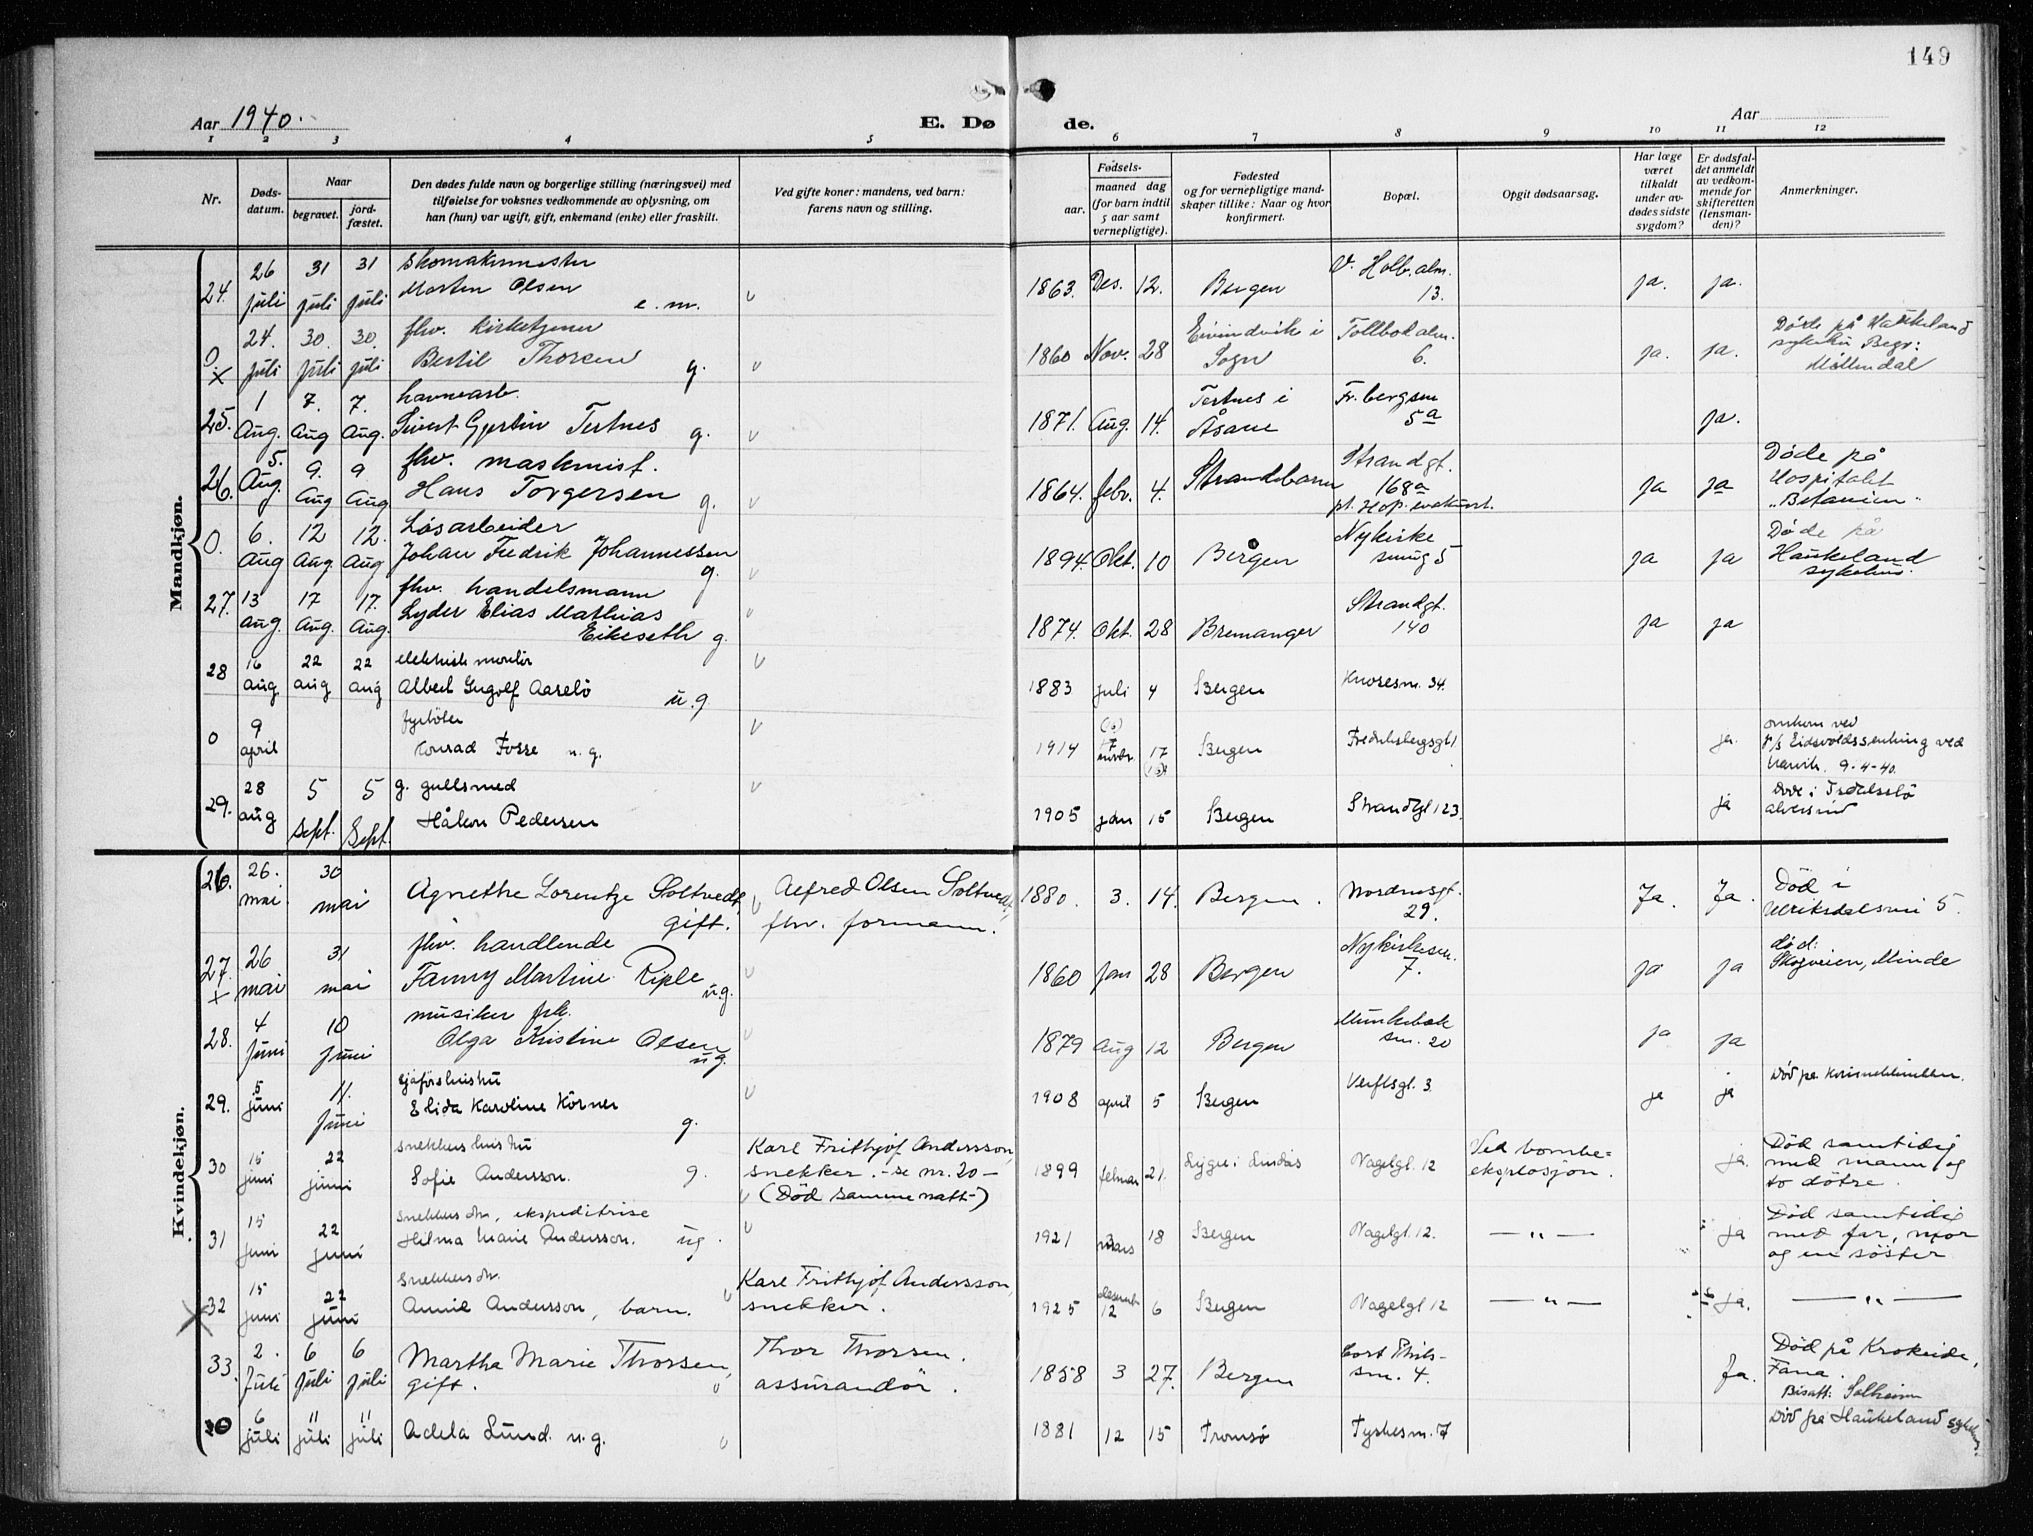 149
Aar 1940.
E. Dø de.
Aar
1 2 3 4 5 6 7 8 9 10 11 12
Nr.
Døds-
datum.
Naar
begravet.
jord-
fæstet.
Den dødes fulde navn og borgerlige stilling (næringsvei) med
tilføielse for voksnes vedkommende av oplysning, om
han (hun) var ugift, gift, enkemand (enke) eller fraskilt.
Ved gifte koner: mandens, ved barn:
farens navn og stilling.
Fødsels-
aar.
maaned dag
(for barn indtil
5 aar samt
vernepligtige).
Fødested
og for vernepligtige mand-
skaper tillike: Naar og hvor
konfirmert.
Bopæl.
Opgit dødsaarsag.
Har læge
været
tilkaldt
under av-
dødes sidste
sygdom?
Er dødsfal-
det anmeldt
av vedkom-
mende for
skifteretten
(lensman-
den)?
Anmerkninger.
Mandkjøn.
24. 26 juli 31 juli 31 juli skomakermester
Morten Olsen e.m. 1863. Des. 12. Bergen V. Holb.alm.
13. ja. ja.
0. x 24. juli 30. juli 30. juli fhv. kirketjener
Bertil Thorsen g. 1860 Nov. 28 Eivindvik i
Sogn Tollbodalm.
6. ja. ja. Døde på Haukeland
sykehus Begr:
Møllendal
25. 1 Aug. 7. Aug 7. Aug. havnearb.
Sivert Gjertin Tertnes g. 1871. Aug. 14. Tertnes i
Åsane Fr.bergsm
5a ja.
26. 5. Aug. 9. Aug 9 Aug fhv. maskinist.
Hans Torgersen g. 1864. febr. 4. Strandebarm Strandgt.
168a
pt. Hop. evakuert. ja ja Døde på
Hospitalet
"Betanien"
0. 6. Aug 12 Aug. 12. Aug Løsarbeider
Johan Fredrik Johannessen g. 1894. Okt. 10 Bergen Nykirke
smug 5 ja ja Døde på
Haukeland
sykehus.
27. 13 aug. 17 Aug. 17. Aug. fhv. handelsmann
Lyder Elias Mathias
Eikeseth g. 1874. Okt. 28 Bremanger Strandgt.
140 ja ja
28 16 aug 22 aug 22 aug elektrisk montör
Albert Ingolf Aarelö u.g 1883 juli 4 Bergen Knøsesm. 34.
0 9 april fyrböter
Konrad Fosse u.g. 1914 17 Bergen Fredriksbergsgt 1 ja. omkom ved
D/s Eidsvoldssenking ved
Narvik. 9-4-40.
29. 28 aug 5 sept. 5 Sept. g. gullsmed
Håkon Pedersen 1905 jan 15 Bergen Strandgt 123. ja Døde i
Kvindekjøn.
26. 26. mai 30 mai Agnethe Lorentze Soltvedt,
gift. Alfred Olsen Soltvedt,
fhv. formann. 1880. 3. 14. Bergen. Nordnesgt.
29. Ja. Ja. Död i
Ulriksdalsvei 5.
27. x 26 mai 31 mai fhv. handlende
Fanny Martine Riple u.g. 1860 Jan 28 Bergen Nykirkesm.
7. ja ja död:
Skogveien, Minde
28. 4 Juni 10 Juni musiker frk.
Olga Kristine Olsen u.g. 1879 Aug 12 Bergen Munkebæk
sm. 20 ja ja
29. 5 juni 11. Juni sjåførshustru
Elida Karoline Körner g. 1908 april 5 Bergen Verftsgt. 3 ja ja Död på
30 15 juni 22 juni snekkers hustru
Sofie Andersson. g. Karl Frithjof Andersson,
snekker. - se nr. 20 -
(Död samme natt-) 1899 februar 21. Lygre i Lindås Nagelgt. 12 Ved bombe-
eksplosjon. ja. Död samtidig
med mann og
to døtre.
31 15 juni 22 juni snekkers dtr., ekspeditrise
Hilma Marie Andersson. ug. 1921 mars 18 Bergen Nagelgt. 12. — " — ja Död samtidig
med far, mor
og en söster
x 32 15 juni 22 juni snekkers dtr.
Annie Andersson, barn. Karl Frithjof Andersson,
snekker. 1925 desember 12 6 Bergen Nagelgt 12 — " — ja. — " —
33. 2. Juli 6 juli 6 juli Martha Marie Thorsen,
gift. Thor Thorsen.
assurandör. 1858 3 27. Bergen Cort Piils-
sm. 4. Ja. Död på Krokeide,
Fana.
Bisatt: Solheim
0 6 juli 11 juli 11 juli Adela Lund. u.g. 1881 12 15 Tromsö Tyskesm. 7 Död på Haukeland sykehus.